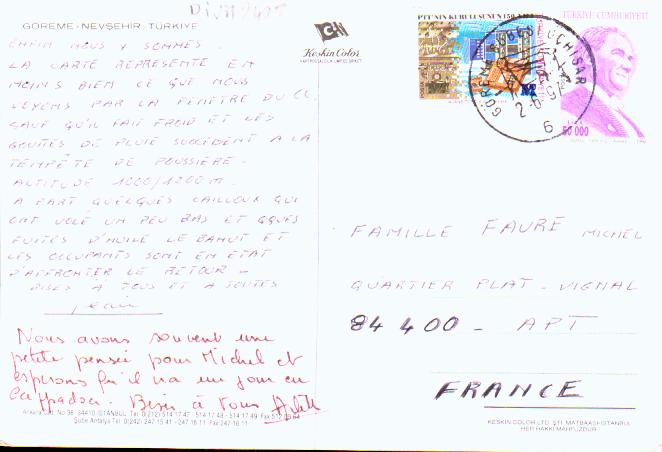 GÖREME - NEVŞEHİR - TÜRKİYE
ENFIN NOUS Y SOMMES
LA CARTE REPRESENTE EN
MOINS BIEN CE QUE NOUS
VOYONS PAR LA FENETRE DU CC.
SAUF QU'IL FAIT FROID ET LES
GOUTES DE PLUIE SUCCEDENT A LA
TEMPÊTE DE POUSSIERE -
ALTITUDE 1000/1200 m -
A PART QUELQUES CAILLOUX QUI
ONT VOLÉ UN PEU BAS ET QQUES
FUITES D'HUILE LE BAHUT ET
LES OCCUPANTS SONT EN ETAT
D'AFFRONTER LE RETOUR -
BISES A TOUS ET A TOUTES
Jean
Nous avons souvent une
petite pensée pour Michel et
esperons qu'il ira un jour en
Cappadoce. Bises à tous
Ankara Cad. No: 98 34410 İSTANBUL Tel: 0(212) 514 17 47 - 514 17 48 - 514 17 49 Fax 512 09 64
Şube Antalya Tel: 0(242) 247 15 41 - 247 16 11 Fax 247 16 11
Keskin Color
KARTPOSTALCILIK LİMİTED ŞİRKETİ
PTT'NİN KURULUŞUNUN 150.
TÜRKİYE CUMHURİYETİ
LİRA
50 000
GÖREME ÜÇHİSAR
6
FAMILLE FAURE MICHEL
QUARTIER PLAT - VIGNAL
84 400 - APT
FRANCE
KESKİN COLOR LTD. ŞTİ. MATBAASI-İSTANBUL
HER HAKKI MAHFUZDUR